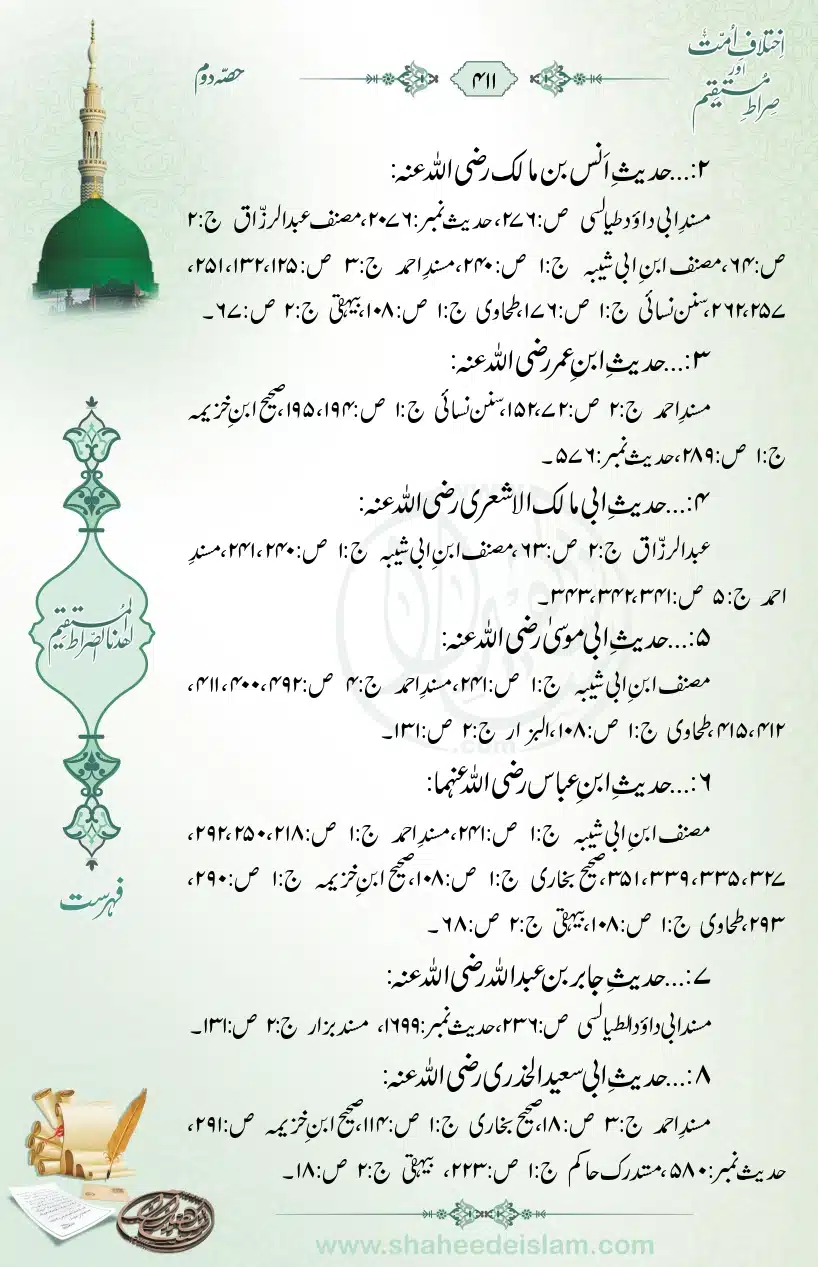 اِختلافِ اُمّت
اور
صِراطِ مُستقیم
۴۱۱
حصّہ دوم
۲:...حدیثِ اَنس بن مالک رضی اللہ عنہ:
مسندِ ابی داؤد طیالسی ص:۲۷۶، حدیث نمبر:۲۰۷۶، مصنف عبدالرزّاق ج:۲
ص:۶۴، مصنف ابنِ ابی شیبہ ج:۱ ص:۲۴۰، مسندِ احمد ج:۳ ص:۱۲۵، ۱۳۲، ۲۵۱،
۲۵۷، ۲۶۲، سنن نسائی ج:۱ ص:۱۷۶، طحاوی ج:۱ ص:۱۰۸، بیہقی ج:۲ ص:۶۷۔
۳:...حدیثِ ابنِ عمر رضی اللہ عنہ:
مسندِ احمد ج:۲ ص:۷۲، ۱۵۲، سنن نسائی ج:۱ ص:۱۹۴، ۱۹۵، صحیح ابنِ خزیمہ
ج:۱ ص:۲۸۹، حدیث نمبر:۵۷۶۔
۴:...حدیثِ ابی مالک الاشعری رضی اللہ عنہ:
عبدالرزّاق ج:۲ ص:۶۳، مصنف ابنِ ابی شیبہ ج:۱ ص:۲۴۰، ۲۴۱، مسندِ
احمد ج:۵ ص:۳۴۱، ۳۴۲، ۳۴۳۔
۵:...حدیثِ ابی موسیٰ رضی اللہ عنہ:
مصنف ابنِ ابی شیبہ ج:۱ ص:۲۴۱، مسندِ احمد ج:۴ ص:۴۹۲، ۴۰۰، ۴۱۱،
۴۱۲، ۴۱۵، طحاوی ج:۱ ص:۱۰۸، البزار ج:۲ ص:۱۳۱۔
۶:...حدیثِ ابنِ عباس رضی اللہ عنہما:
مصنف ابنِ ابی شیبہ ج:۱ ص:۲۴۱، مسندِ احمد ج:۱ ص:۲۱۸، ۲۵۰، ۲۹۲،
۳۲۷، ۳۳۵، ۳۳۹، ۳۵۱، صحیح بخاری ج:۱ ص:۱۰۸، صحیح ابنِ خزیمہ ج:۱ ص:۲۹۰،
۲۹۳، طحاوی ج:۱ ص:۱۰۸، بیہقی ج:۲ ص:۶۸۔
۷:...حدیثِ جابر بن عبداللہ رضی اللہ عنہ:
مسند ابی داؤد الطیالسی ص:۲۳۶، حدیث نمبر:۱۶۹۹، مسند بزار ج:۲ ص:۱۳۱۔
۸:...حدیثِ ابی سعید الخدری رضی اللہ عنہ:
مسندِ احمد ج:۳ ص:۱۸، صحیح بخاری ج:۱ ص:۱۱۴، صحیح ابنِ خزیمہ ص:۲۹۱،
حدیث نمبر:۵۸۰، متدرک حاکم ج:۱ ص:۲۲۳، بیہقی ج:۲ ص:۱۸۔
اھدنا الصّراط المُستقیم
فہرست
www.shaheedeislam.com